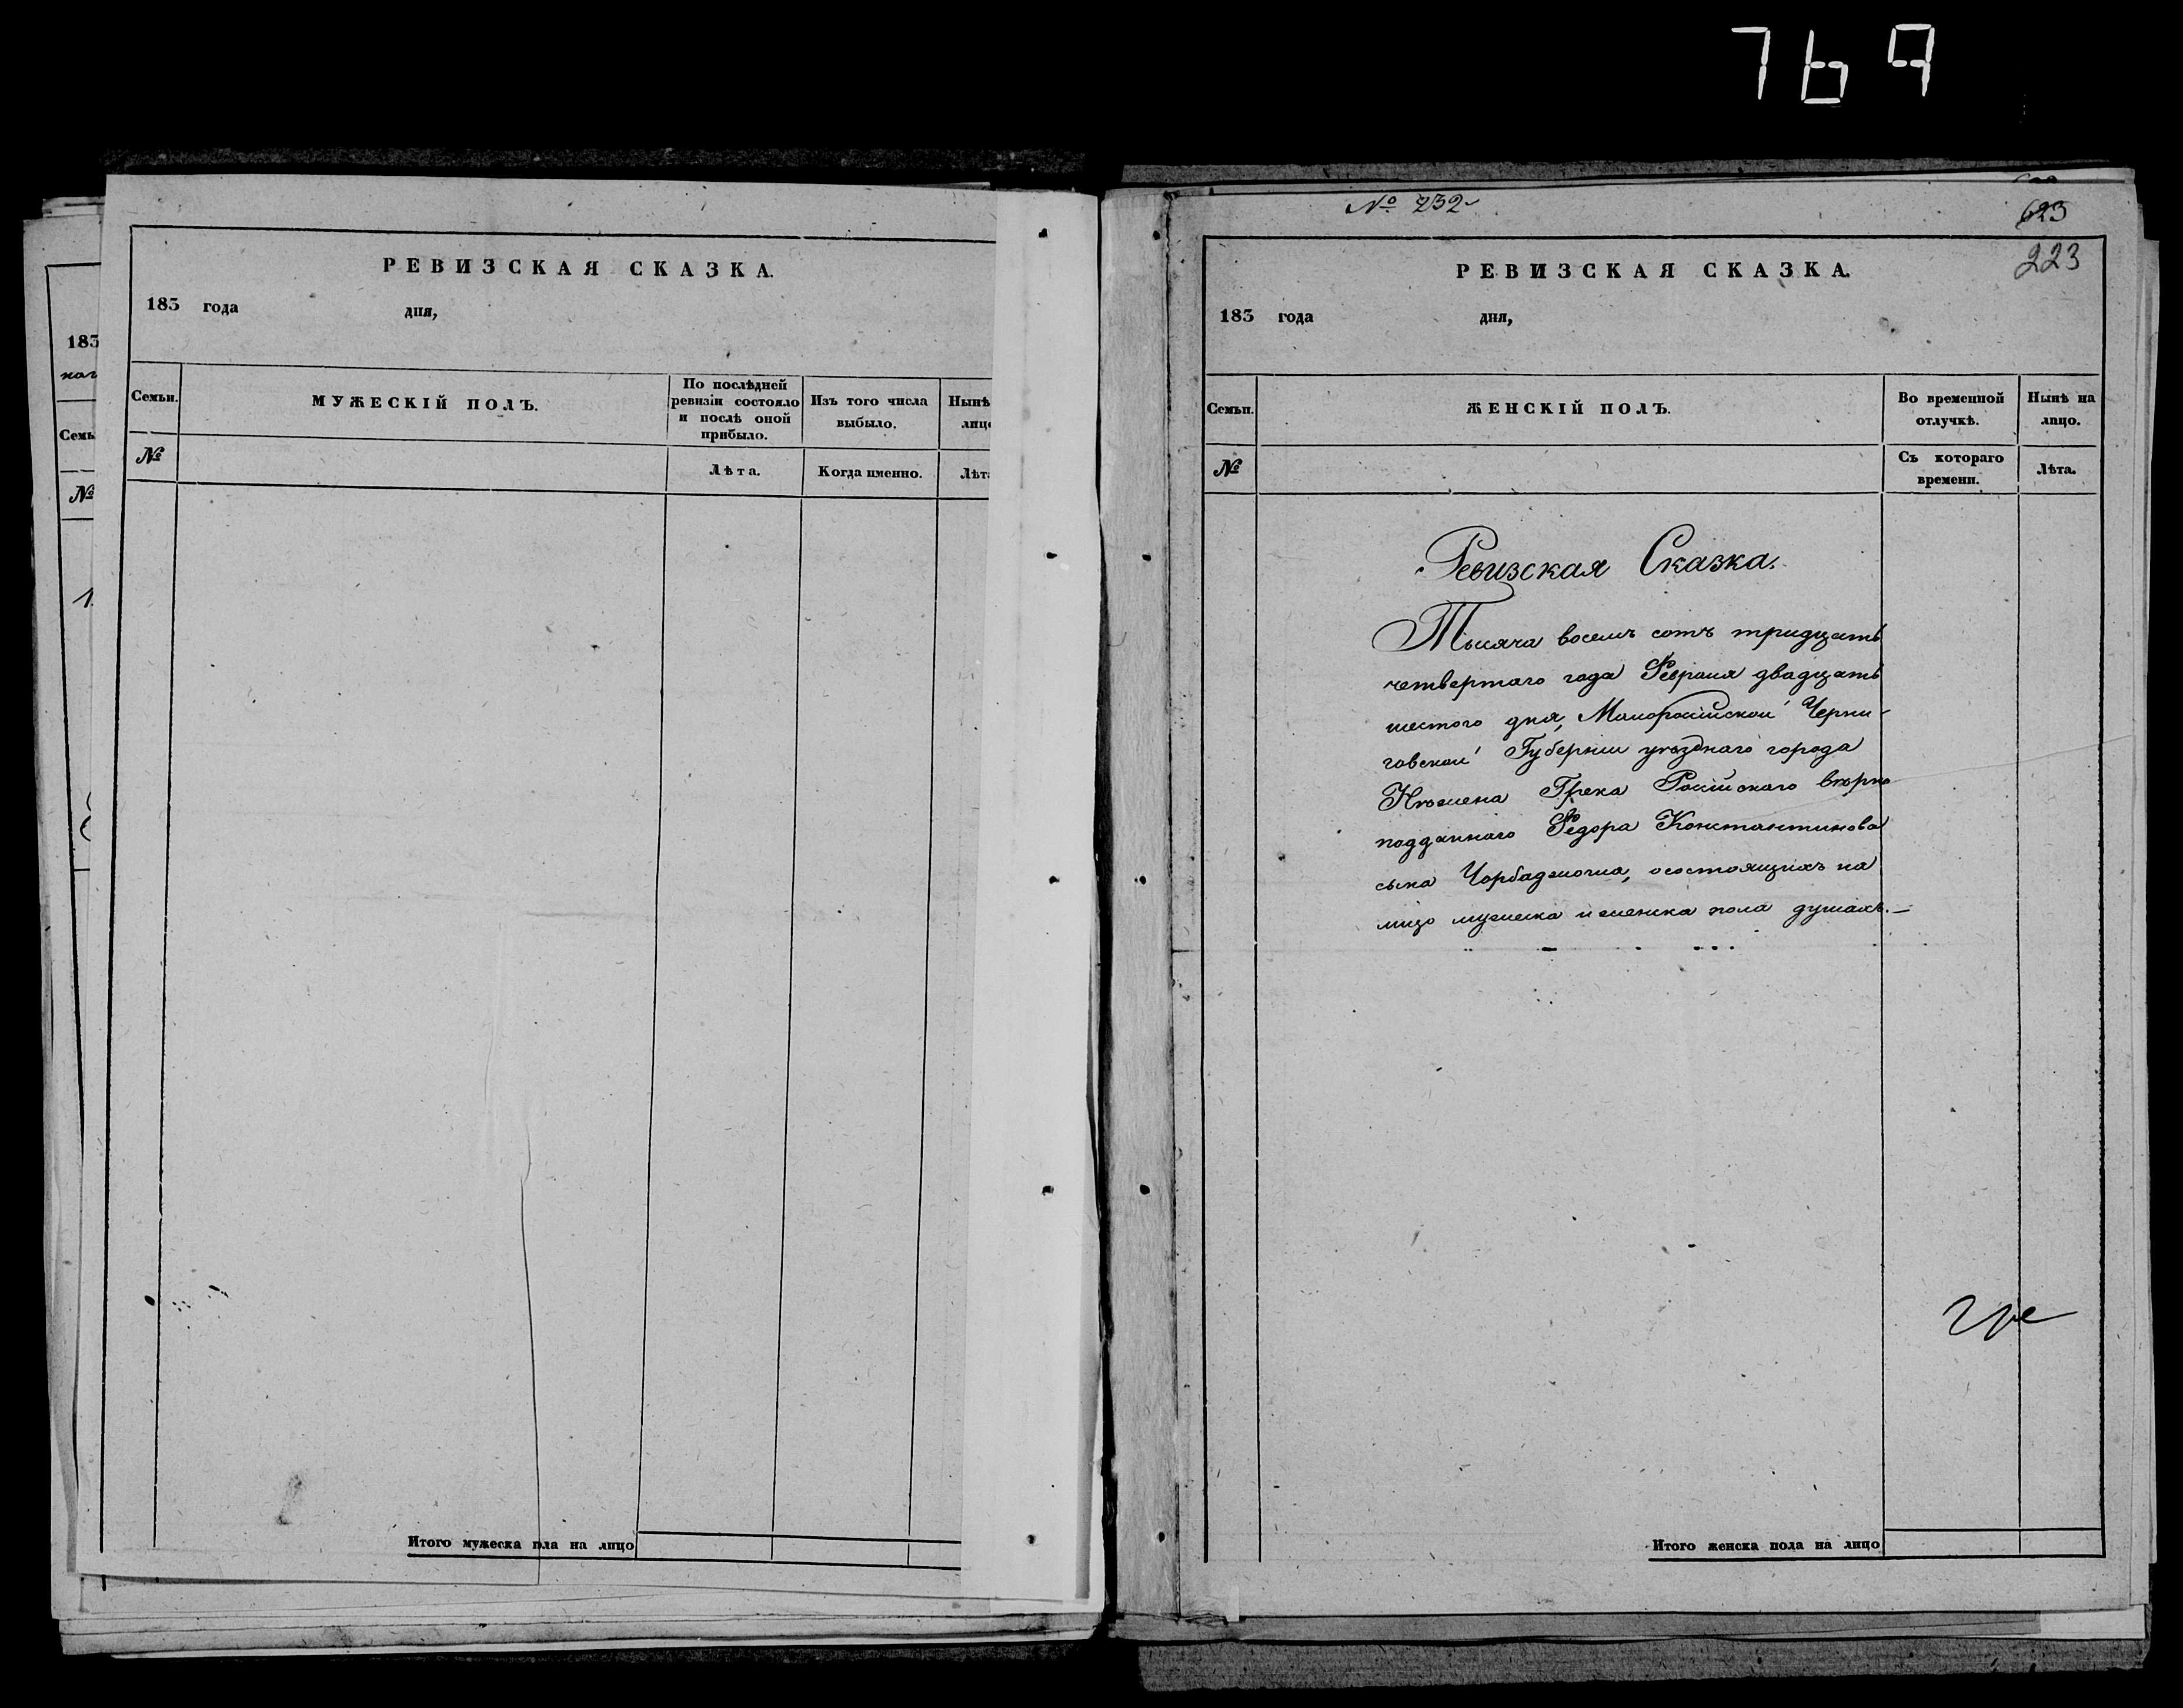 769
РЕВИЗСКАЯ СКАЗКА.
183 года дня,
Семьи. МУЖЕСКІЙ ПОЛЪ. По послѣдней ревизіи состояло и послѣ оной прибыло. Изъ того числа выбыло. Нынѣ лице
№ Лѣта. Когда именно. Лѣт
Итого мужеска пла на лицо
183
Семь
№
1.
№ 232
623
223
РЕВИЗСКАЯ СКАЗКА.
183 года дня,
Семьи. ЖЕНСКІЙ ПОЛЪ. Во временной отлучкѣ. Нынѣ на лицо.
№ Съ котораго времени. Лѣта.
Ревизская Сказка.
Тысяча восемъ сотъ тридцать
четвертаго года Февраля двадцать
шестого дня, Малоросійской Черни-
говской Губерніи уѣзднаго города
Нѣжина Грека Російскаго вѣрно
подданнаго Федора Константинова
сына Чорбаджогла, осостоящихъ на
лицо мужеска и женска пола душахъ.—
Итого женска пола на лицо